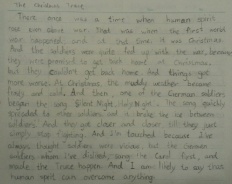 The Christmas Truce
There once was a time when human spirit
has won over war. That was when the first world
war happened, and at that time, it was Christmas.
And the soldiers were quite fed up with the war, because
they were promised to get back home at Christmas,
but they couldn't get back home. And things got
more worse. At Christmas, the muddy weather became
frosty and cold. And then, one of the German soldiers
began the song Silent Night, Holy Night. The song quickly
spreaded to other soldiers and it broke the ice between
soldiers. And they got closer and closer till they just
simply stop fighting. And I'm touched because I've
always thought soldiers were vicious but the German
soldiers whom I've disliked, sang the carol first, and
made the Truce happen. And I am likely to say that
human spirit can overcome anything.